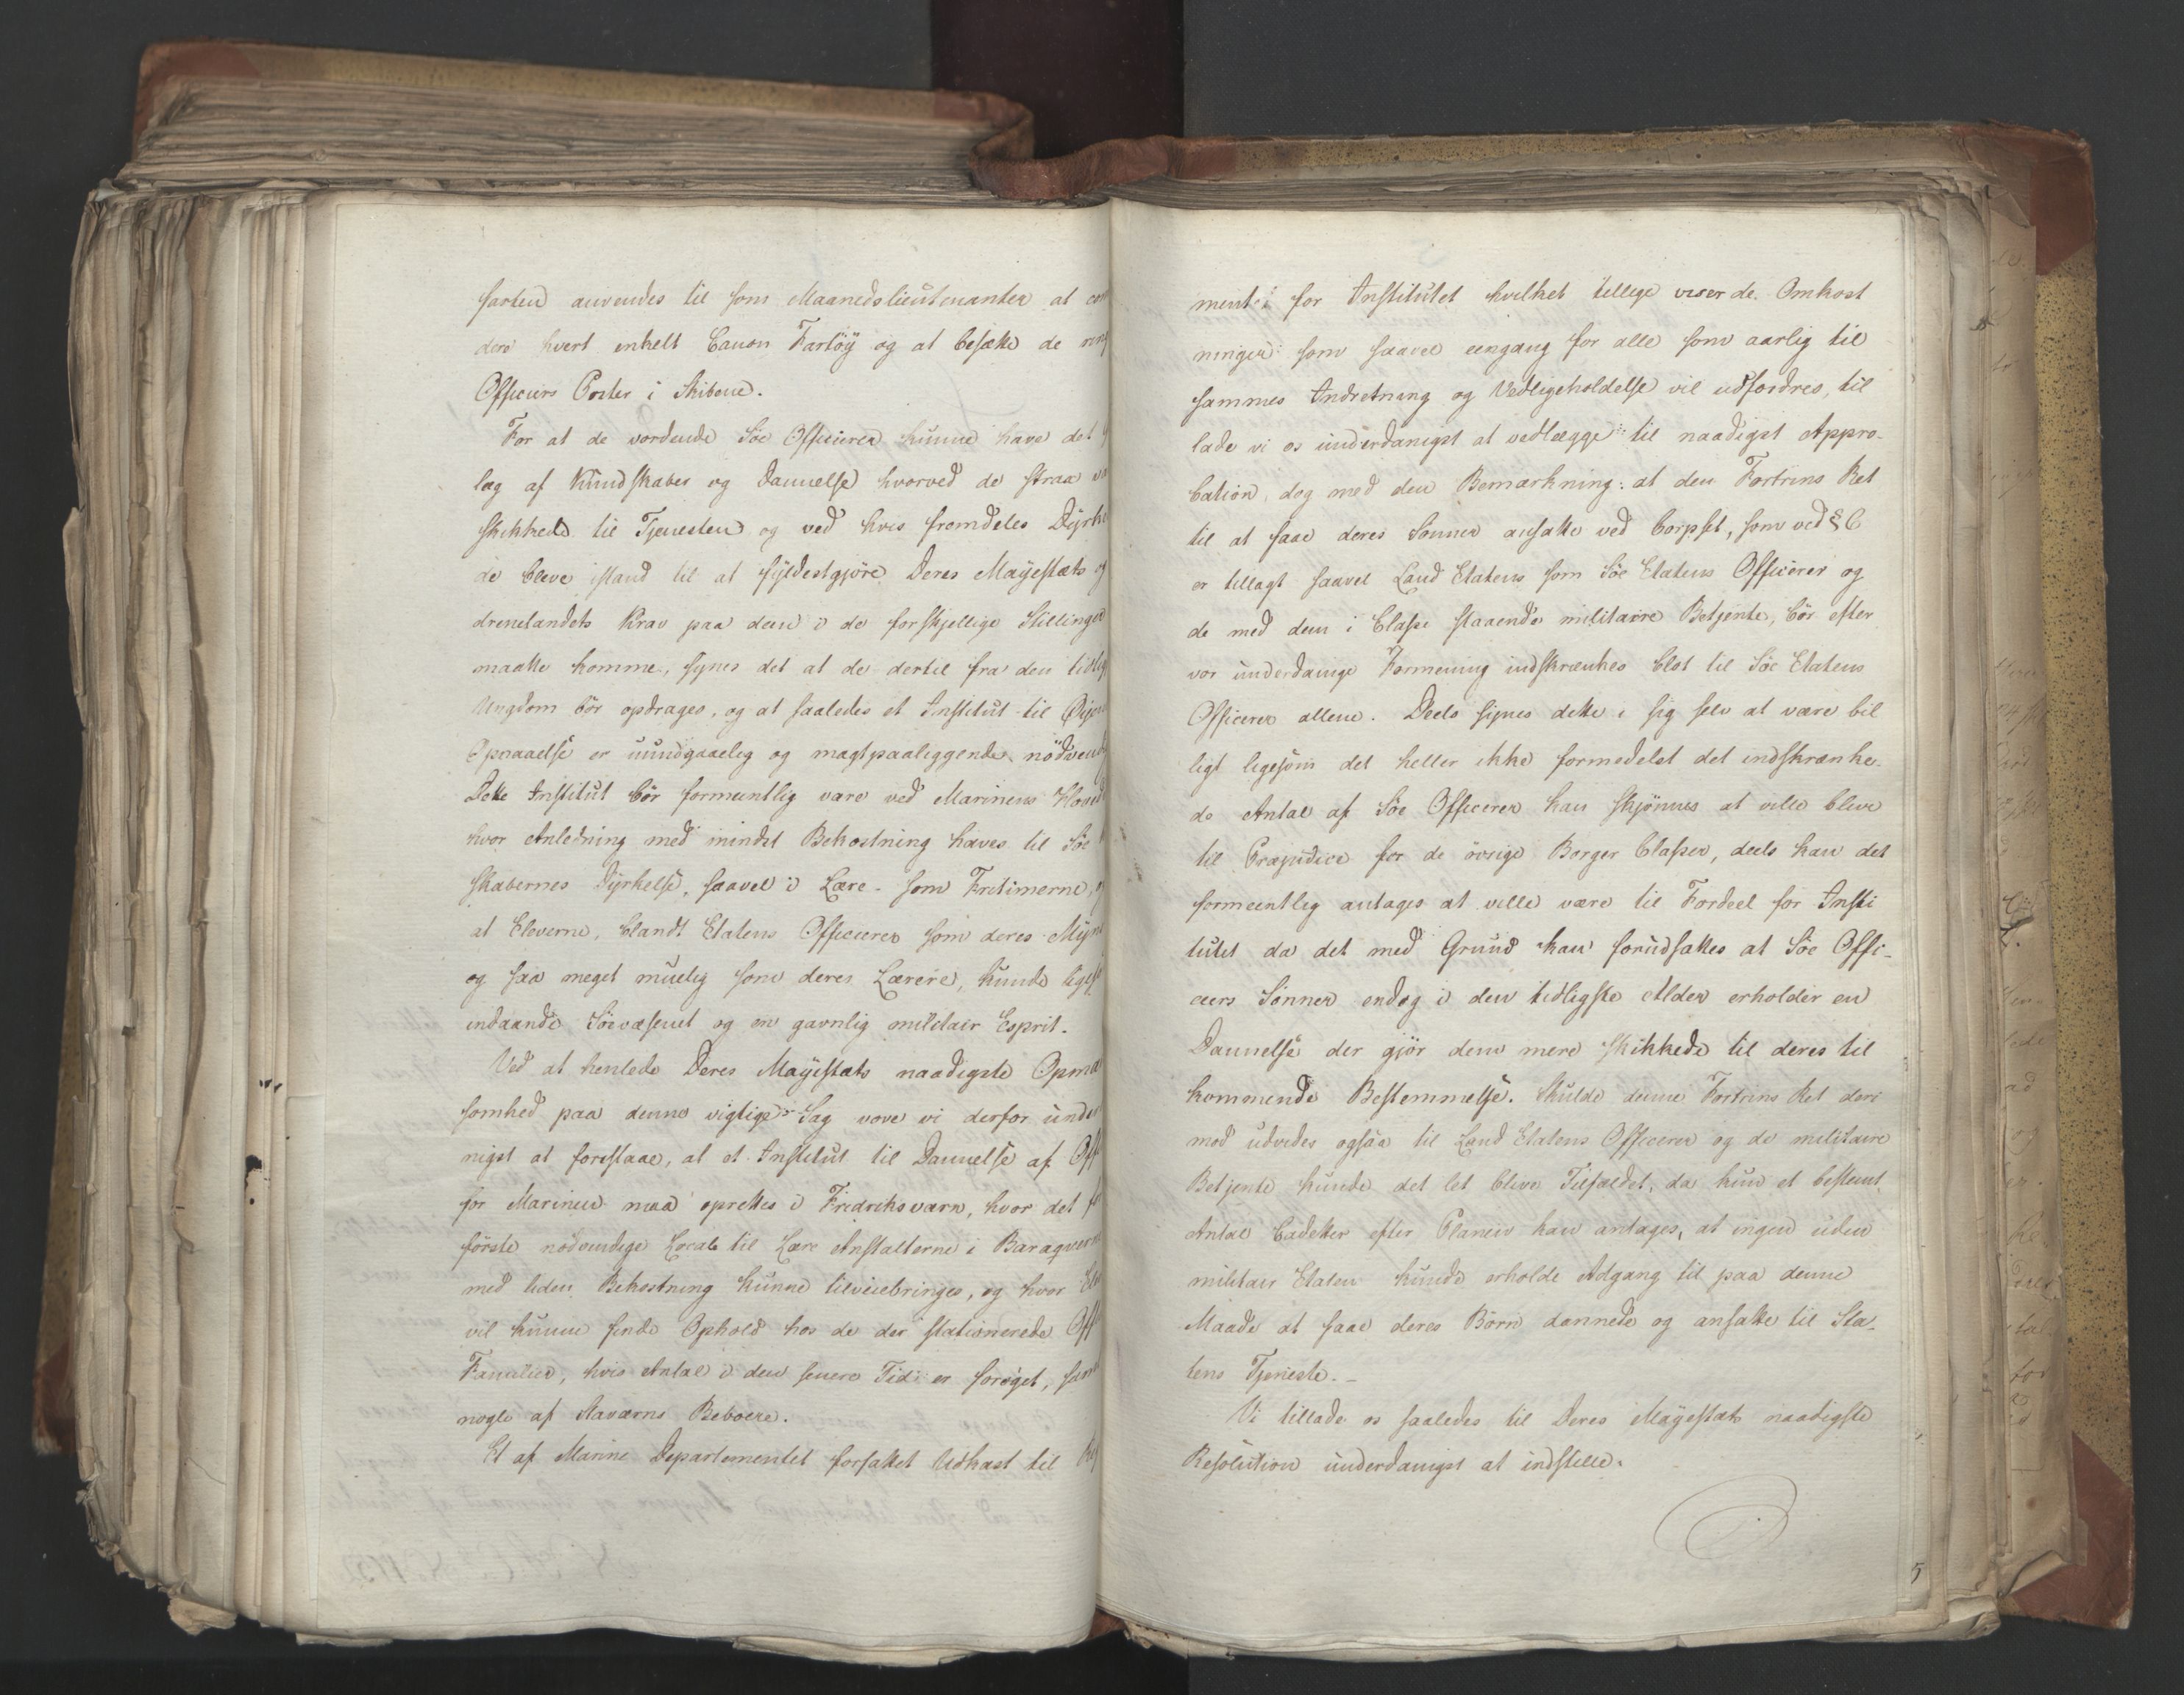 farten anvendes til som Maanedslieutenanter at com
dere hvert enkelt Canon Fartöy og at besætte de ring
Officiers Poster i Skibene.
For at de vordende Söe Officierer kunne have det
læg af Kundskaber og Dannelse hvorved de straa
skikkede til Tjenesten og ved hvis fremdeles Dyrke
de bleve istand til at fyldestgjöre Deres Mayestæts og
drenelandets Krav paa dem i de forskjellige Stillinger
maatte komme, synes det at de dertil fra den tidlig
Ungdom bör opdrages, og at saaledes et Institut til Öjem
Opnaaelse er uundgaaelig og magtpaaliggende nödvend
Dette Institut bör formeentlig være ved Marinens Hoved
hvor Anledning med mindst Bekostning haves til Söe
skabernes Dyrkelse, saavel i Lære- som Fritimerne,
at Eleverne, blandt Etatens Officierer som deres Myn
og saa meget muelig som deres Lærere, kunde ligef
indaande Söevæsenet og en gavnlig militair Esprit.
Ved at henlede Deres Mayestæts naadigste Opmæ
somhed paa denne vigtige Sag vove vi derfor under
nigst at foreslaae, at et Institut til Dannelse af Off
for Marinen maa oprettes i Fredriksværn, hvor det
förste nödvendige Locale til Lære Anstalterne i Baraquerne
med liden Bekostning kunne tilveiebringes, og hvor Ele
vil kunne finde Ophold hos de der stationerede Off
Familier, hvis Antal i den senere Tid er foröget, sam
nogle af Staværns Beboere.
Et af Marine Departementet forfattet Udkast til Reg
ment for Institutet hvilket tillige viser de Omkost
ninger som saavel eengang for alle som aarlig til
sammes Indretning og Vedligeholdelse vil udfordres, til
lade vi os underdanigst at vedlægge til naadigst Appro-
bation, dog med den Bemærkning: at den Fortrins Ret
til at faae deres Sönner ansatte ved Corpset, som ved § 6
er tillagt saavel Land Etatens som Söe Etatens Officerer og
de med dem i Classe staaende militaire Betjente, bör efter
vor underdanige Formening indskrænkes blot til Söe Etatens
Officerer allene. Deels synes dette i sig selv at være bil
ligt ligesom det heller ikke formedelst det indskrænke-
de Antal af Söe Officerer kan skjönnes at ville blive
til Præjudice for de övrige Borger Classer, deels kan det
formeentlig antages at ville være til Fordeel for Insti
tutet da det med Grund kan forudsættes at Söe Offi-
ceers Sönner endog i den tidligste Alder erholder en
Dannelse der gjör dem mere skikkede til deres til
kommende Bestemmelse. Skulde denne Fortrins Ret deri
mod udvides ogsaa til Land Etatens Officerer og de militaire
Betjente kunde det let blive Tilfældet, da kun et bestemt
Antal Cadetter efter Planen kan antages, at ingen uden
militair Etaten kunde erholde Adgang til paa denne
Maade at faae deres Börn dannede og ansatte til Sta-
tens Tjeneste.-
Vi tillade os saaledes til Deres Mayestæts naadigste
Resolution underdanigst at indstille.
5